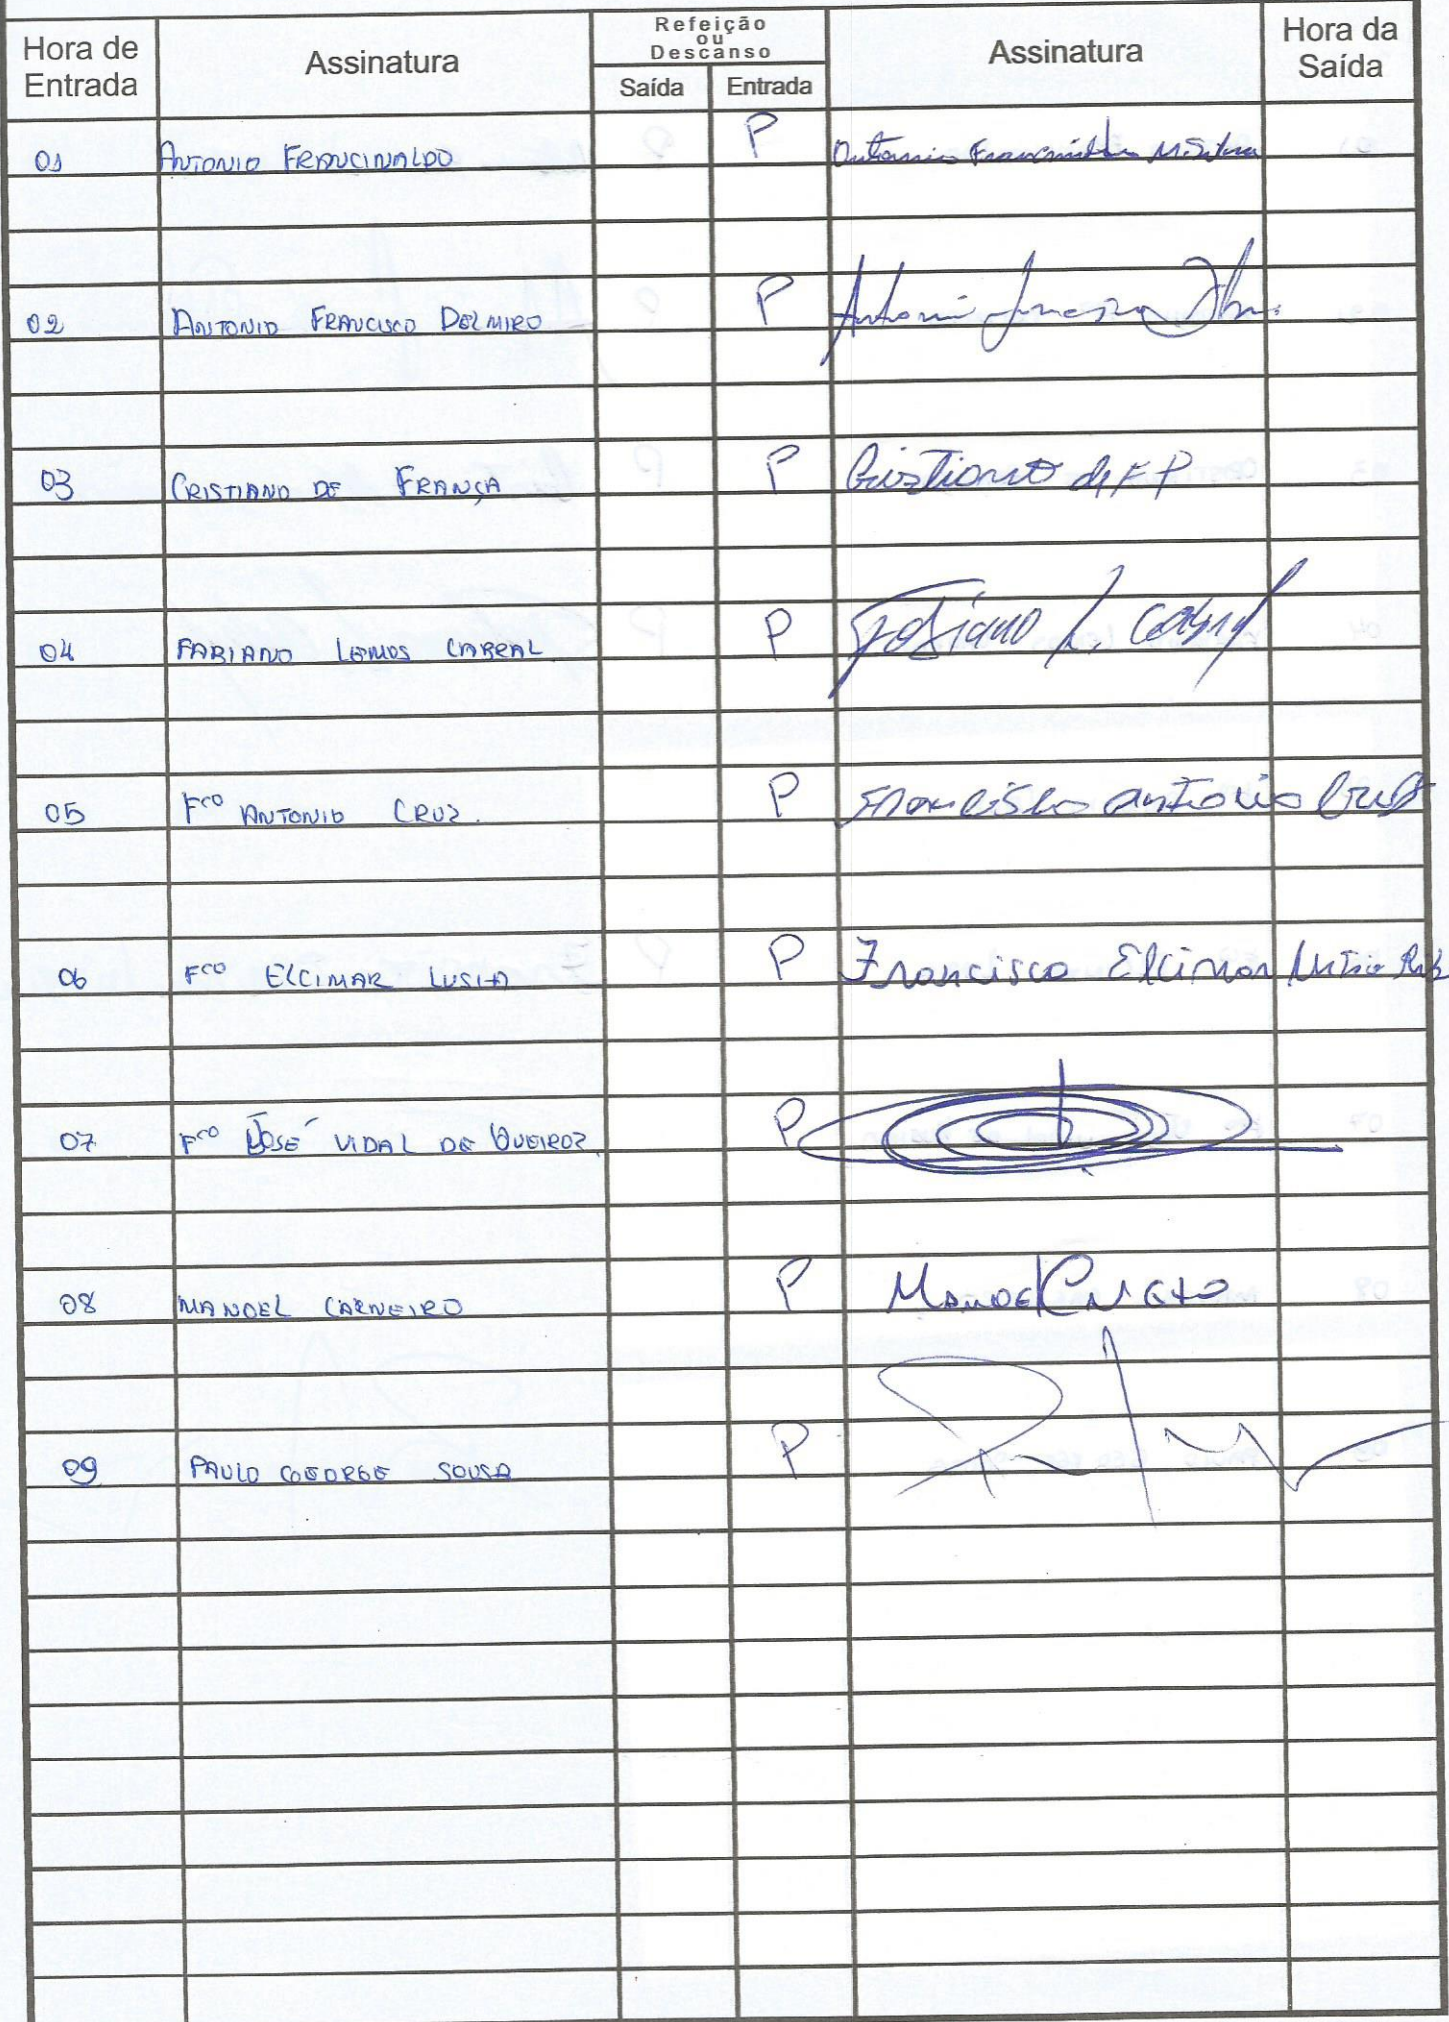 Hora de Entrada Assinatura Refeição ou Descanso Saída Entrada Assinatura Hora da Saída
01 ANTONIO FRANCINALDO P Antonio
02 ANTONIO FRANCISCO DELMIRO P Antonio
03 CRISTIANO DE FRANÇA P Cristiano de F P
04 FABIANO LEMOS CABRAL P Fabiano L. Cabral
05 Fco ANTONIO CRUZ. P Francisco antonio Cruz
06 Fco ELCIMAR LUSIA P Francisco Elcimar
07 Fco JOSÉ VIDAL DE QUEIROZ P
08 MANOEL CARNEIRO P Manoel
09 PAULO GEORGE SOUSA P